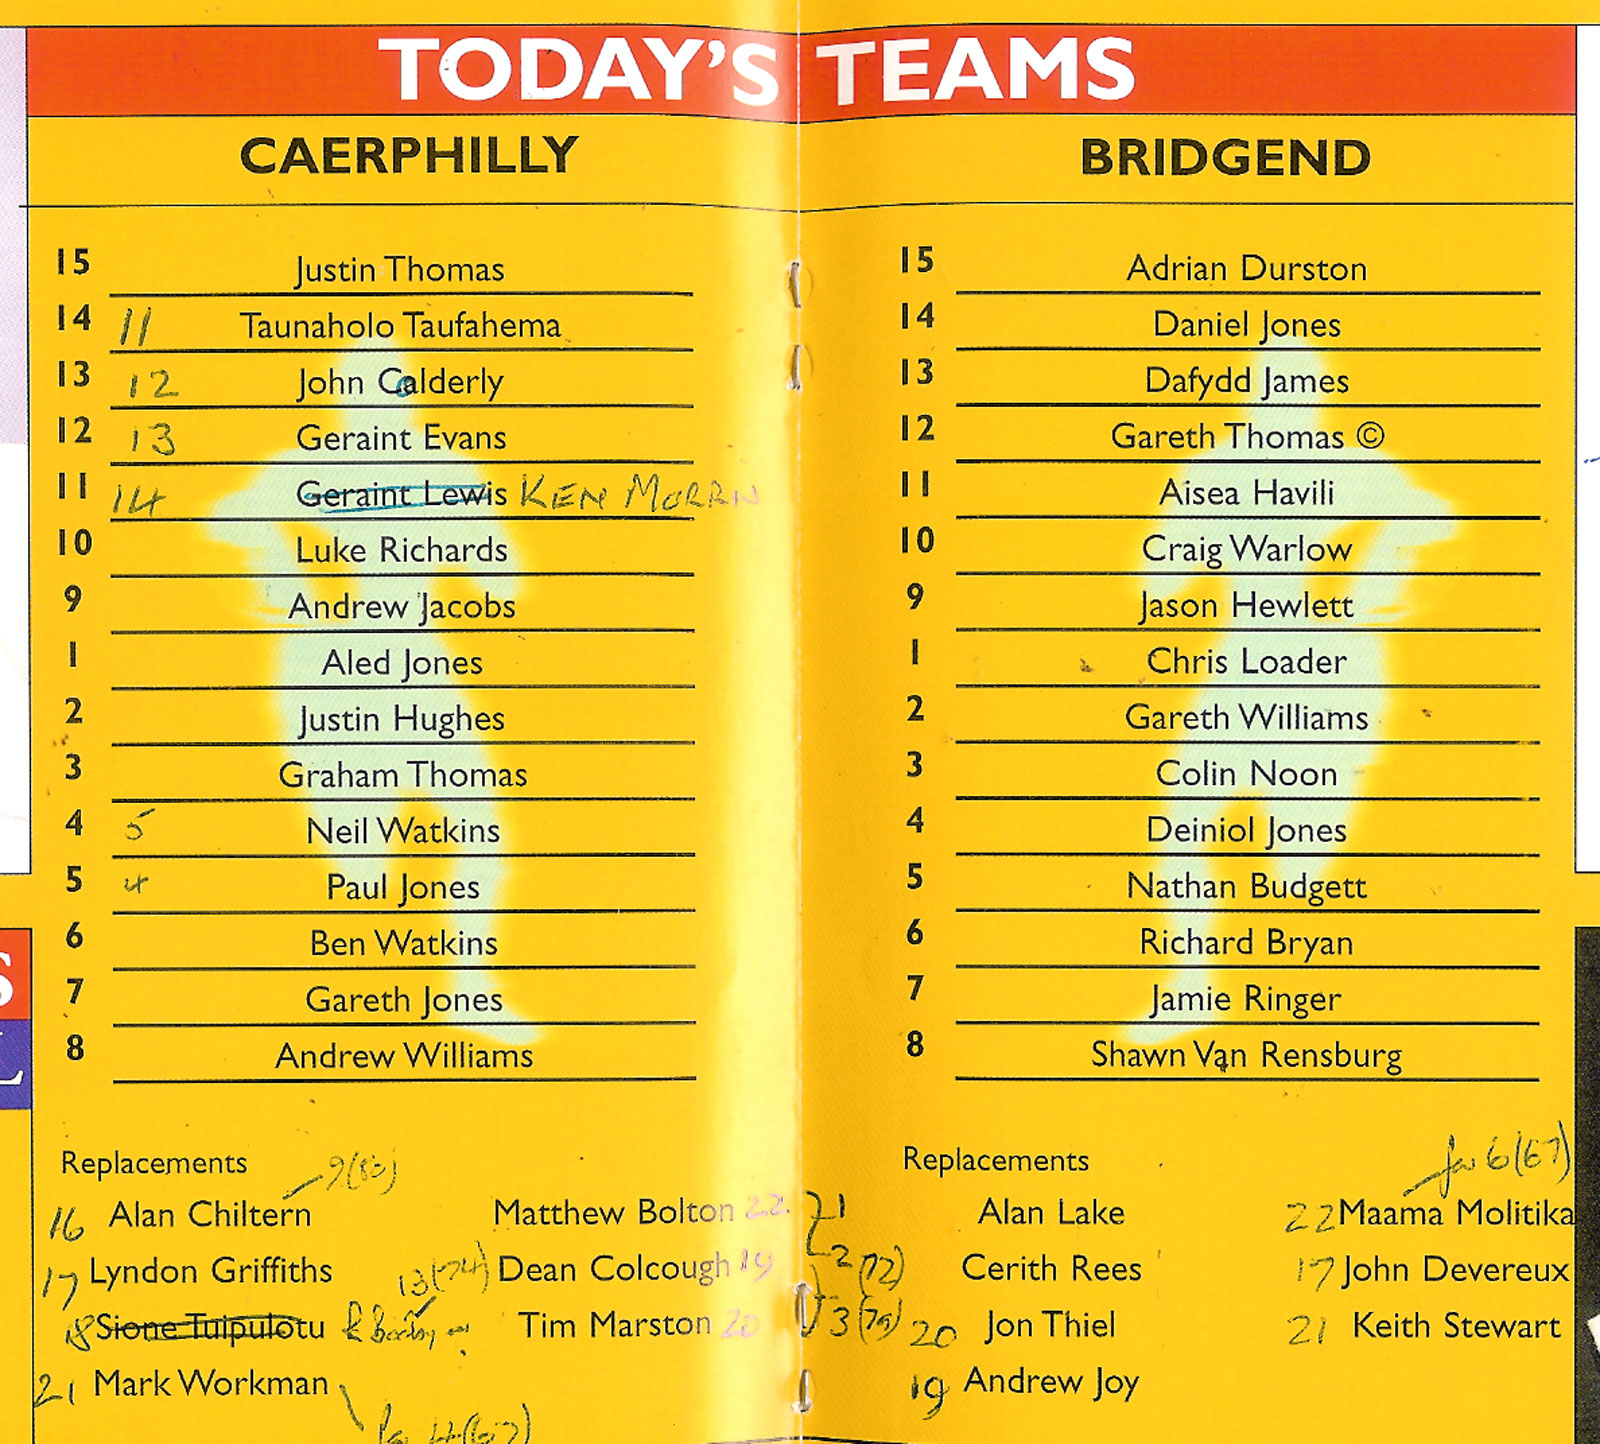 TODAY'S TEAMS
CAERPHILLY
15 Justin Thomas
14 11 Taunaholo Taufahema
13 12 John Calderly
12 13 Geraint Evans
11 14 Geraint Lewis KEN
10 Luke Richards
9 Andrew Jacobs
1 Aled Jones
2 Justin Hughes
3 Graham Thomas
4 5 Neil Watkins
5 4 Paul Jones
6 Ben Watkins
7 Gareth Jones
8 Andrew Williams
Replacements 9(80)
16 Alan Chiltern Matthew Bolton 22
17 Lyndon Griffiths 13(74) Dean Colcough 19
18 Sione Tuipulotu Tim Marston 20
21 Mark Workman
BRIDGEND
15 Adrian Durston
14 Daniel Jones
13 Dafydd James
12 Gareth Thomas ©
11 Aisea Havili
10 Craig Warlow
9 Jason Hewlett
1 Chris Loader
2 Gareth Williams
3 Colin Noon
4 Deiniol Jones
5 Nathan Budgett
6 Richard Bryan
7 Jamie Ringer
8 Shawn Van Rensburg
Replacements for 6(67)
Alan Lake 22 Maama Molitika
2(72) Cerith Rees 17 John Devereux
3(79) 20 Jon Thiel 21 Keith Stewart
19 Andrew Joy